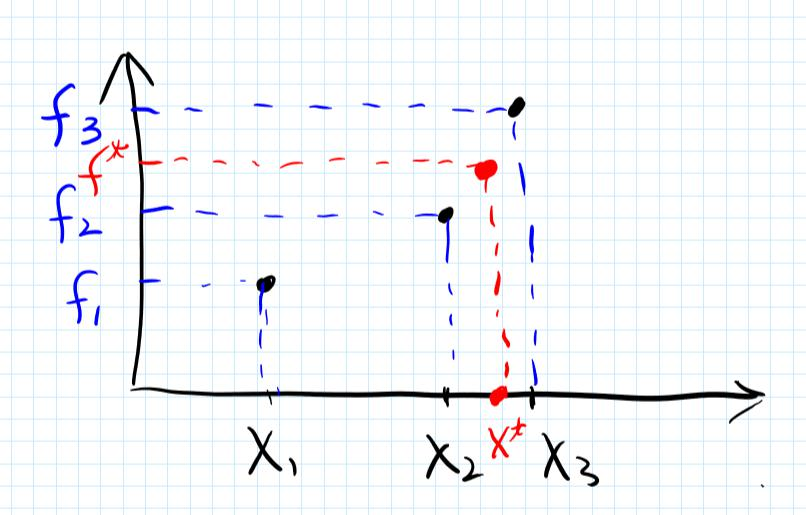 f₃
f*
f₂
f₁
x₁ x₂ x* x₃